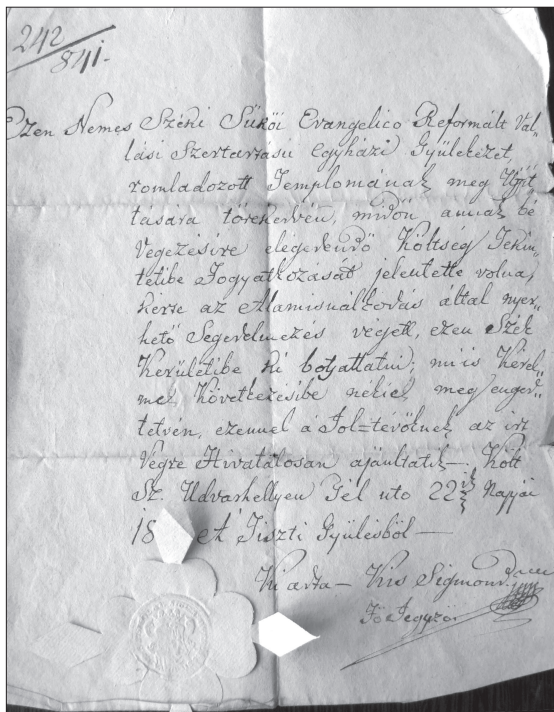 242/841.
Ezen Nemes Széki Sükői Evangelico Reformált Val„
lási Szertartású Egyházi Gyülekezet,
romladozott Templomának meg Újjit
tására törekedvén, midőn annak bé
Végezésire elégedendő Költség Tekin„
tetibe Fogyatkozását jelentette volna,
kérve az Alamisnálkodás által nyer„
hető Segedelmezés végett, ezen Szék
Kerületibe ki botsattatni; mi is Kérel„
mek Következésibe nékiek meg enged„
tetvén, ezennel a Jol=tévőknek az irt
Végre Hivatalosan ajánltatik— Költ
Sz. Udvarhellyen Tél uto 22 Napján
18 Tiszti Gyűlésből —
Ki adta — Kis Sigmond
Fő Jegyző